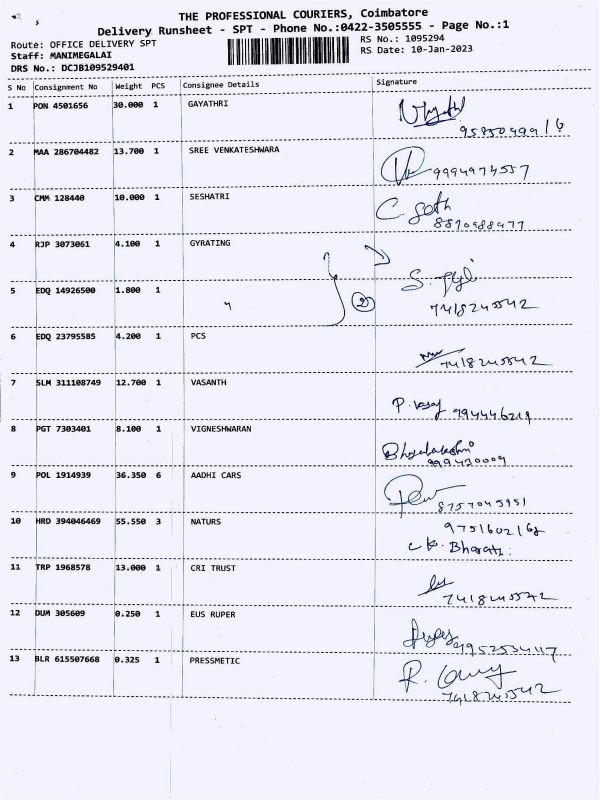 THE PROFESSIONAL COURIERS, Coimbatore
Delivery Runsheet - SPT - Phone No.:0422-3505555 - Page No.:1
Route: OFFICE DELIVERY SPT
RS No.: 1095294
Staff: MANIMEGALAI
RS Date: 10-Jan-2023
DRS No.: DCJB109529401
S No Consignment No Weight PCS Consignee Details Signature
1 PON 4501656 30.000 1 GAYATHRI
2 MAA 286704482 13.700 1 SREE VENKATESHWARA
9994974557
3 CMM 128440 10.000 1 SESHATRI
C. Seth
8870988977
4 RJP 3073061 4.100 1 GYRATING
5 EDQ 14926500 1.800 1 " 2
7418245542
6 EDQ 23795585 4.200 1 PCS
7418245542
7 SLM 311108749 12.700 1 VASANTH
8 PGT 7303401 8.100 1 VIGNESHWARAN
9 POL 1914939 36.350 6 AADHI CARS
10 HRD 394046469 55.550 3 NATURS
9751602168
C K. Bharati.
11 TRP 1968578 13.000 1 CRI TRUST
7418245542
12 DUM 305609 0.250 1 EUS RUPER
13 BLR 615507668 0.325 1 PRESSMETIC
7418245542